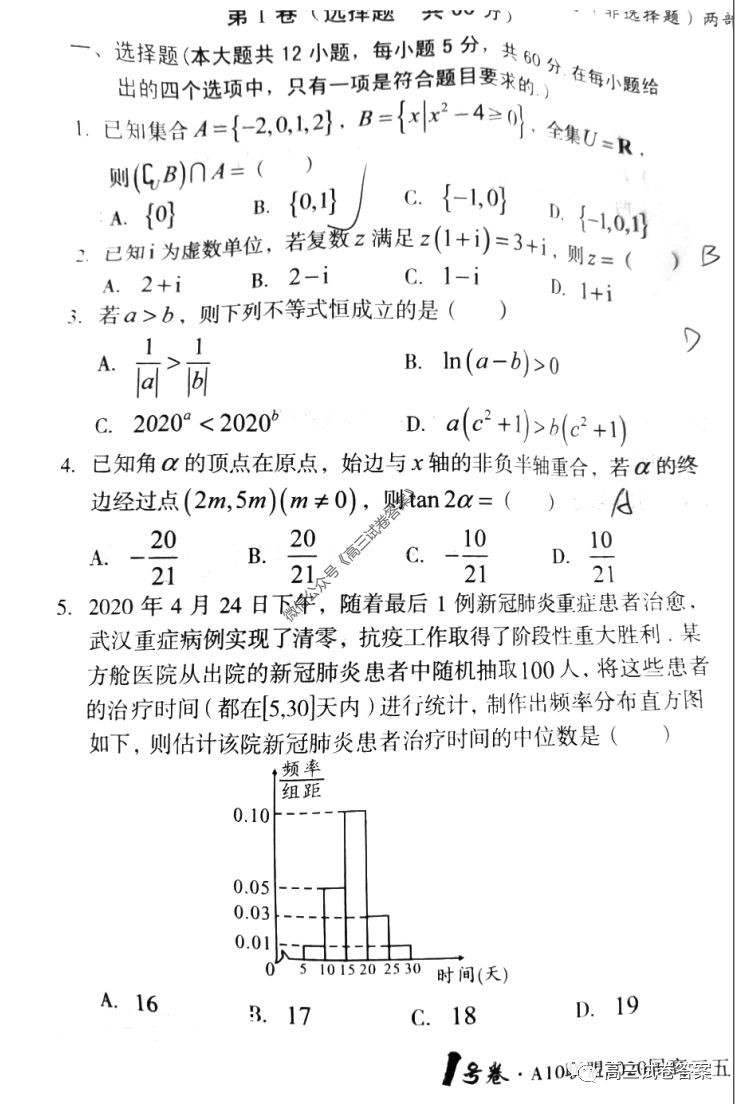 第Ⅰ卷（选择题 共60分）
（非选择题）两部
一、选择题(本大题共 12 小题，每小题 5 分，共 60 分.在每小题给
出的四个选项中，只有一项是符合题目要求的.)
1. 已知集合 A={-2,0,1,2}，B={x|x²-4≥0}，全集U=R，
则(∁UB)∩A=（ ）
A. {0} B. {0,1} C. {-1,0} D. {-1,0,1}
2. 已知 i 为虚数单位，若复数 z 满足 z(1+i)=3+i，则 z=（ ） B
A. 2+i B. 2-i C. 1-i D. 1+i
3. 若 a>b，则下列不等式恒成立的是（ ）
D
A. 1/|a|>1/|b| B. ln(a-b)>0
C. 2020ᵃ<2020ᵇ D. a(c²+1)>b(c²+1)
4. 已知角 α 的顶点在原点，始边与 x 轴的非负半轴重合，若 α 的终
边经过点(2m,5m)(m≠0)，则tan2α=（ ） A
A. -20/21 B. 20/21 C. -10/21 D. 10/21
微信公众号《高三试卷答案》
5. 2020 年 4 月 24 日下午，随着最后 1 例新冠肺炎重症患者治愈，
武汉重症病例实现了清零，抗疫工作取得了阶段性重大胜利．某
方舱医院从出院的新冠肺炎患者中随机抽取100人，将这些患者
的治疗时间（都在[5,30]天内）进行统计，制作出频率分布直方图
如下，则估计该院新冠肺炎患者治疗时间的中位数是（ ）
频率
组距
0.10
0.05
0.03
0.01
0 5 10 15 20 25 30 时间(天)
A. 16 B. 17 C. 18 D. 19
1号卷·A10联盟2020届高三五
高三试卷答案